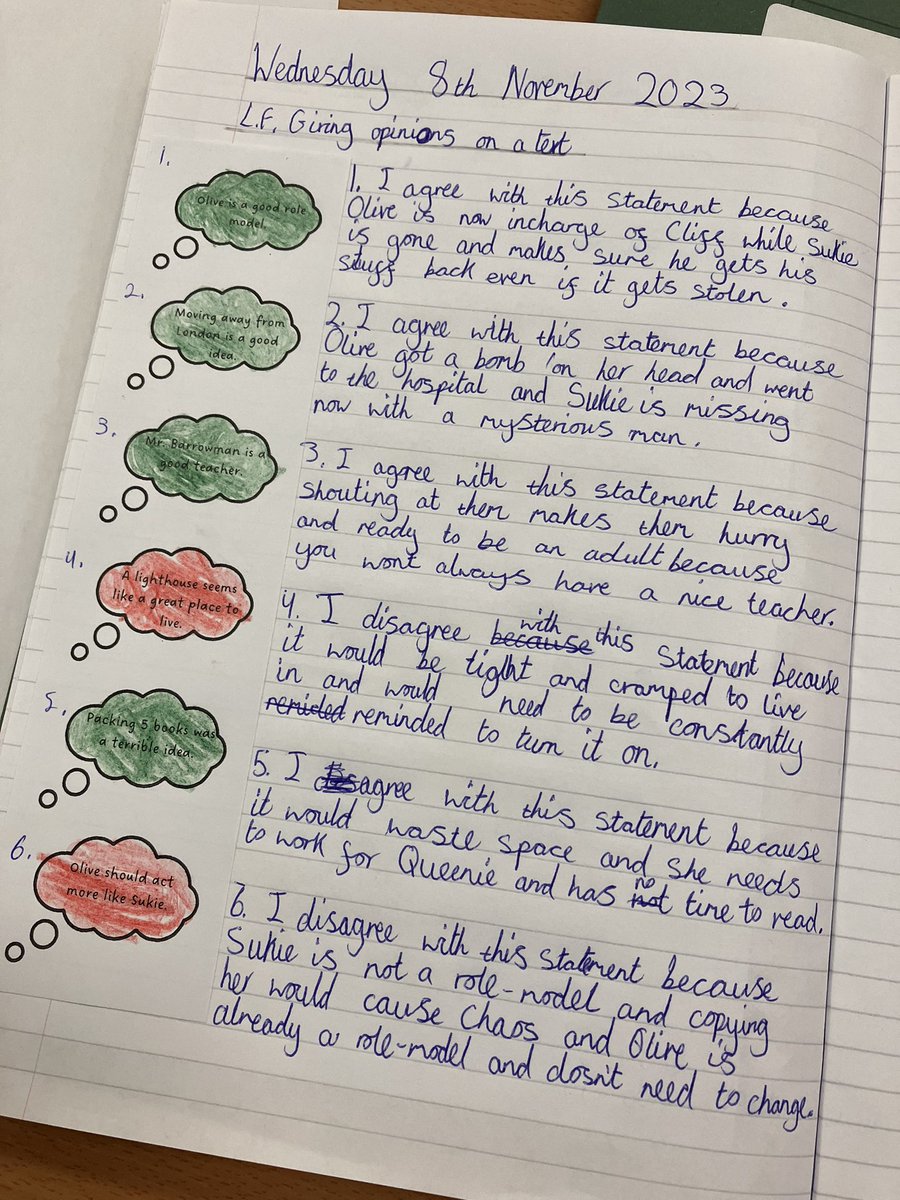 Wednesday 8th November 2023
L.F. Giving opinions on a text
1.
Olive is a good role
model.
1. I agree with this statement because
Olive is now incharge of Cliff while Sukie
is gone and makes sure he gets his
stuff back even if it gets stolen.
2.
Moving away from
London is a good
idea.
2. I agree with this statement because
Olive got a bomb on her head and went
to the hospital and Sukie is missing
now with a mysterious man.
3.
Mr. Barrowman is a
good teacher.
3. I agree with this statement because
shouting at them makes them hurry
and ready to be an adult because
you wont always have a nice teacher.
4.
A lighthouse seems
like a great place to
live.
4. I disagree because with this statement because
it would be tight and cramped to live
in and would need to be constantly
reminded reminded to turn it on.
5.
Packing 5 books was
a terrible idea.
5. I agree with this statement because
it would waste space and she needs
to work for Queenie and has not no time to read.
6.
Olive should act
more like Sukie.
6. I disagree with this statement because
Sukie is not a role-model and copying
her would cause chaos and Olive is
already a role-model and dosn't need to change.